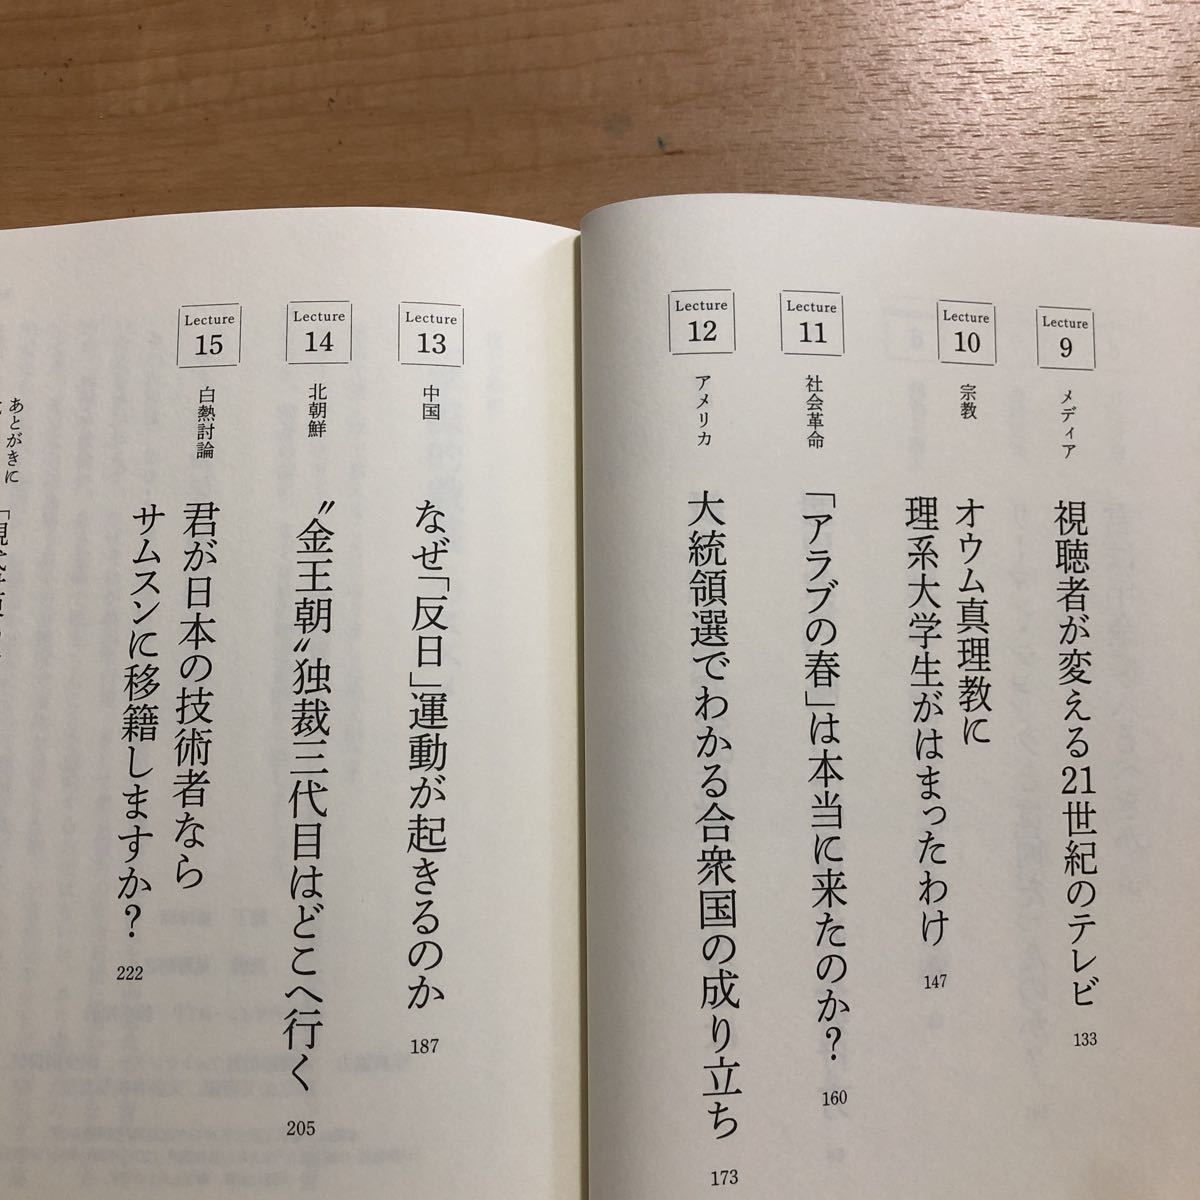 Lecture
9
メディア
視聴者が変える21世紀のテレビ
133
Lecture
10
宗教
オウム真理教に
理系大学生がはまったわけ
147
Lecture
11
社会革命
「アラブの春」は本当に来たのか?
160
Lecture
12
アメリカ
大統領選でわかる合衆国の成り立ち
173
Lecture
13
中国
なぜ「反日」運動が起きるのか
187
Lecture
14
北朝鮮
〝金王朝〟独裁三代目はどこへ行く
205
Lecture
15
白熱討論
君が日本の技術者なら
サムスンに移籍しますか?
222
あとがきに